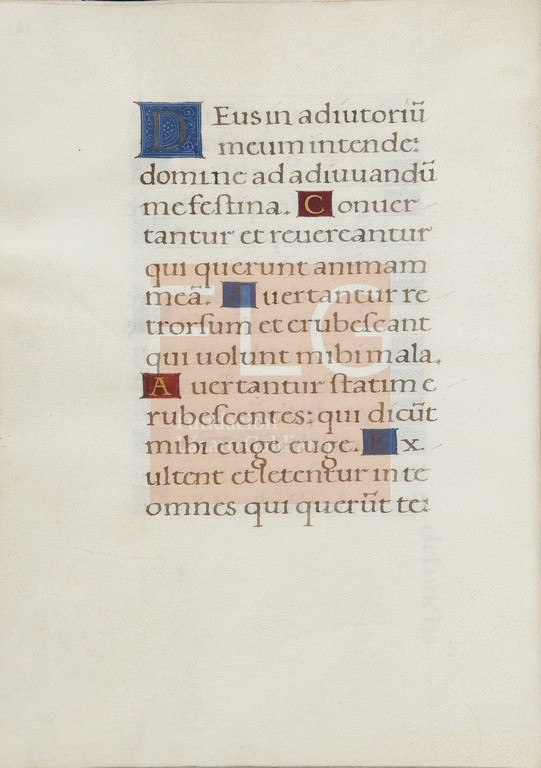 Deus in adiutoriū
meum intende:
domine ad adiuuandū
me feſtina. Conuer
tantur et reuereantur
qui querunt animam
meā. uertantur re
trorſum et erubeſcant
qui uolunt mihi mala.
Auertantur ſtatim e
rubeſcentes: qui dicūt
mihi euge euge. Ex
ultent et letentur in te
omnes qui querūt te:
FLG
Fundación